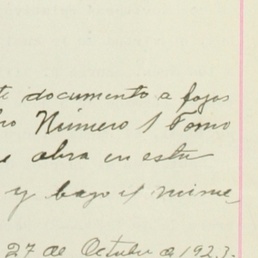 te documento a fojas
ro Número 1 Tomo
e obra en esta
y bajo el núme
27 de Octubre de 1923.